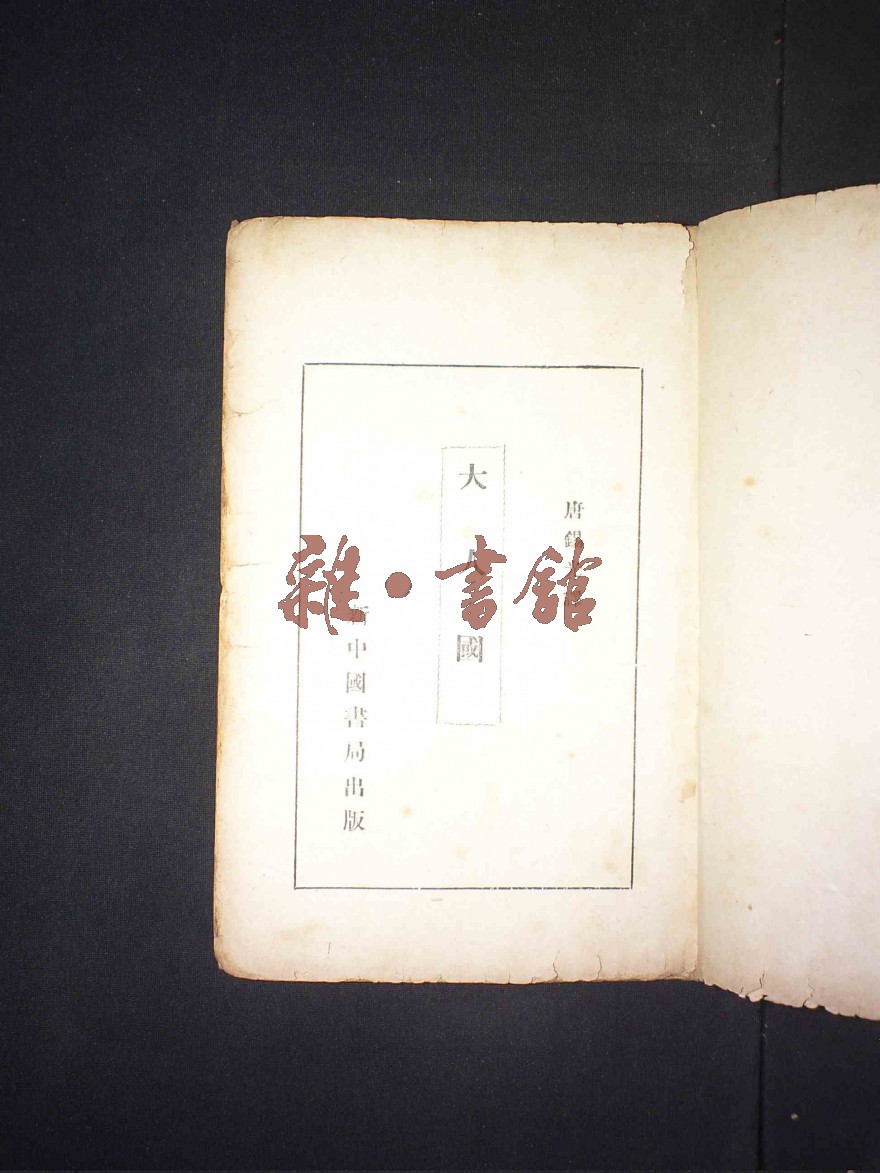 唐錫光
大人國
新中國書局出版
雜・書館